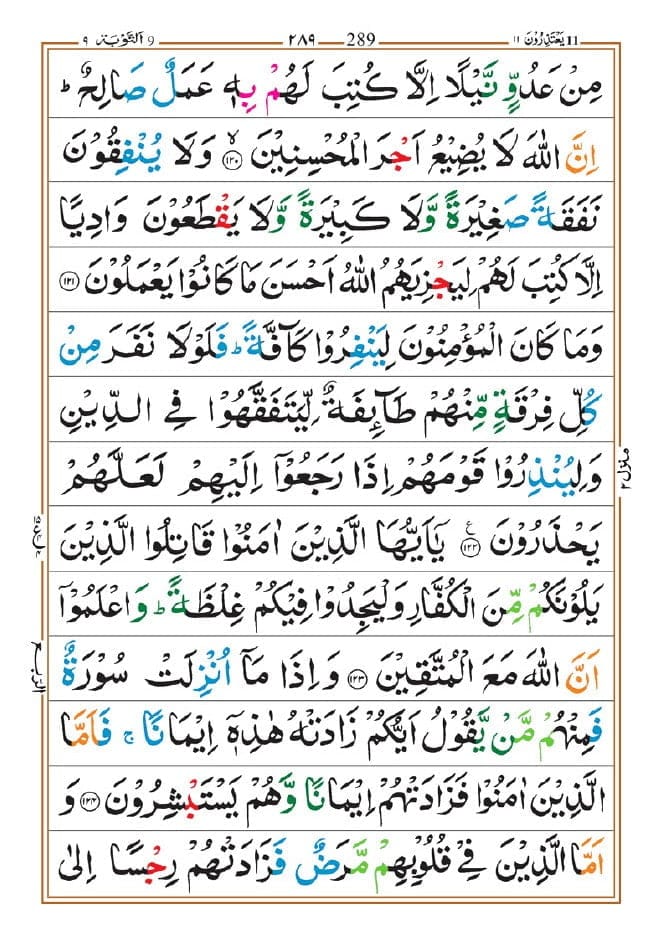 ١١ يَعْتَذِرُوْنَ 11 289 ٢٨٩ 9 اَلتَّوْبَة ٩
مِنْ عَدُوٍّ نَّيْلًا اِلَّا كُتِبَ لَهُمْ بِهٖ عَمَلٌ صَالِحٌ ؕ
اِنَّ اللّٰهَ لَا يُضِيْعُ اَجْرَ الْمُحْسِنِيْنَ ۙ﴿۱۲۰﴾ وَلَا يُنْفِقُوْنَ
نَفَقَةً صَغِيْرَةً وَّلَا كَبِيْرَةً وَّلَا يَقْطَعُوْنَ وَادِيًا
اِلَّا كُتِبَ لَهُمْ لِيَجْزِيَهُمُ اللّٰهُ اَحْسَنَ مَا كَانُوْا يَعْمَلُوْنَ ﴿۱۲۱﴾
وَمَا كَانَ الْمُؤْمِنُوْنَ لِيَنْفِرُوْا كَآفَّةً ؕ فَلَوْلَا نَفَرَ مِنْ
كُلِّ فِرْقَةٍ مِّنْهُمْ طَآئِفَةٌ لِّيَتَفَقَّهُوْا فِي الدِّيْنِ
وَلِيُنْذِرُوْا قَوْمَهُمْ اِذَا رَجَعُوْٓا اِلَيْهِمْ لَعَلَّهُمْ
يَحْذَرُوْنَ ﴿۱۲۲﴾ ع يٰٓاَيُّهَا الَّذِيْنَ اٰمَنُوْا قَاتِلُوا الَّذِيْنَ
يَلُوْنَكُمْ مِّنَ الْكُفَّارِ وَلْيَجِدُوْا فِيْكُمْ غِلْظَةً ؕ وَاعْلَمُوْٓا
اَنَّ اللّٰهَ مَعَ الْمُتَّقِيْنَ ﴿۱۲۳﴾ وَاِذَا مَآ اُنْزِلَتْ سُوْرَةٌ
فَمِنْهُمْ مَّنْ يَّقُوْلُ اَيُّكُمْ زَادَتْهُ هٰذِهٖٓ اِيْمَانًا ۚ فَاَمَّا
الَّذِيْنَ اٰمَنُوْا فَزَادَتْهُمْ اِيْمَانًا وَّهُمْ يَسْتَبْشِرُوْنَ ﴿۱۲۴﴾ وَ
اَمَّا الَّذِيْنَ فِيْ قُلُوْبِهِمْ مَّرَضٌ فَزَادَتْهُمْ رِجْسًا اِلٰى
منزل ٢
الربع